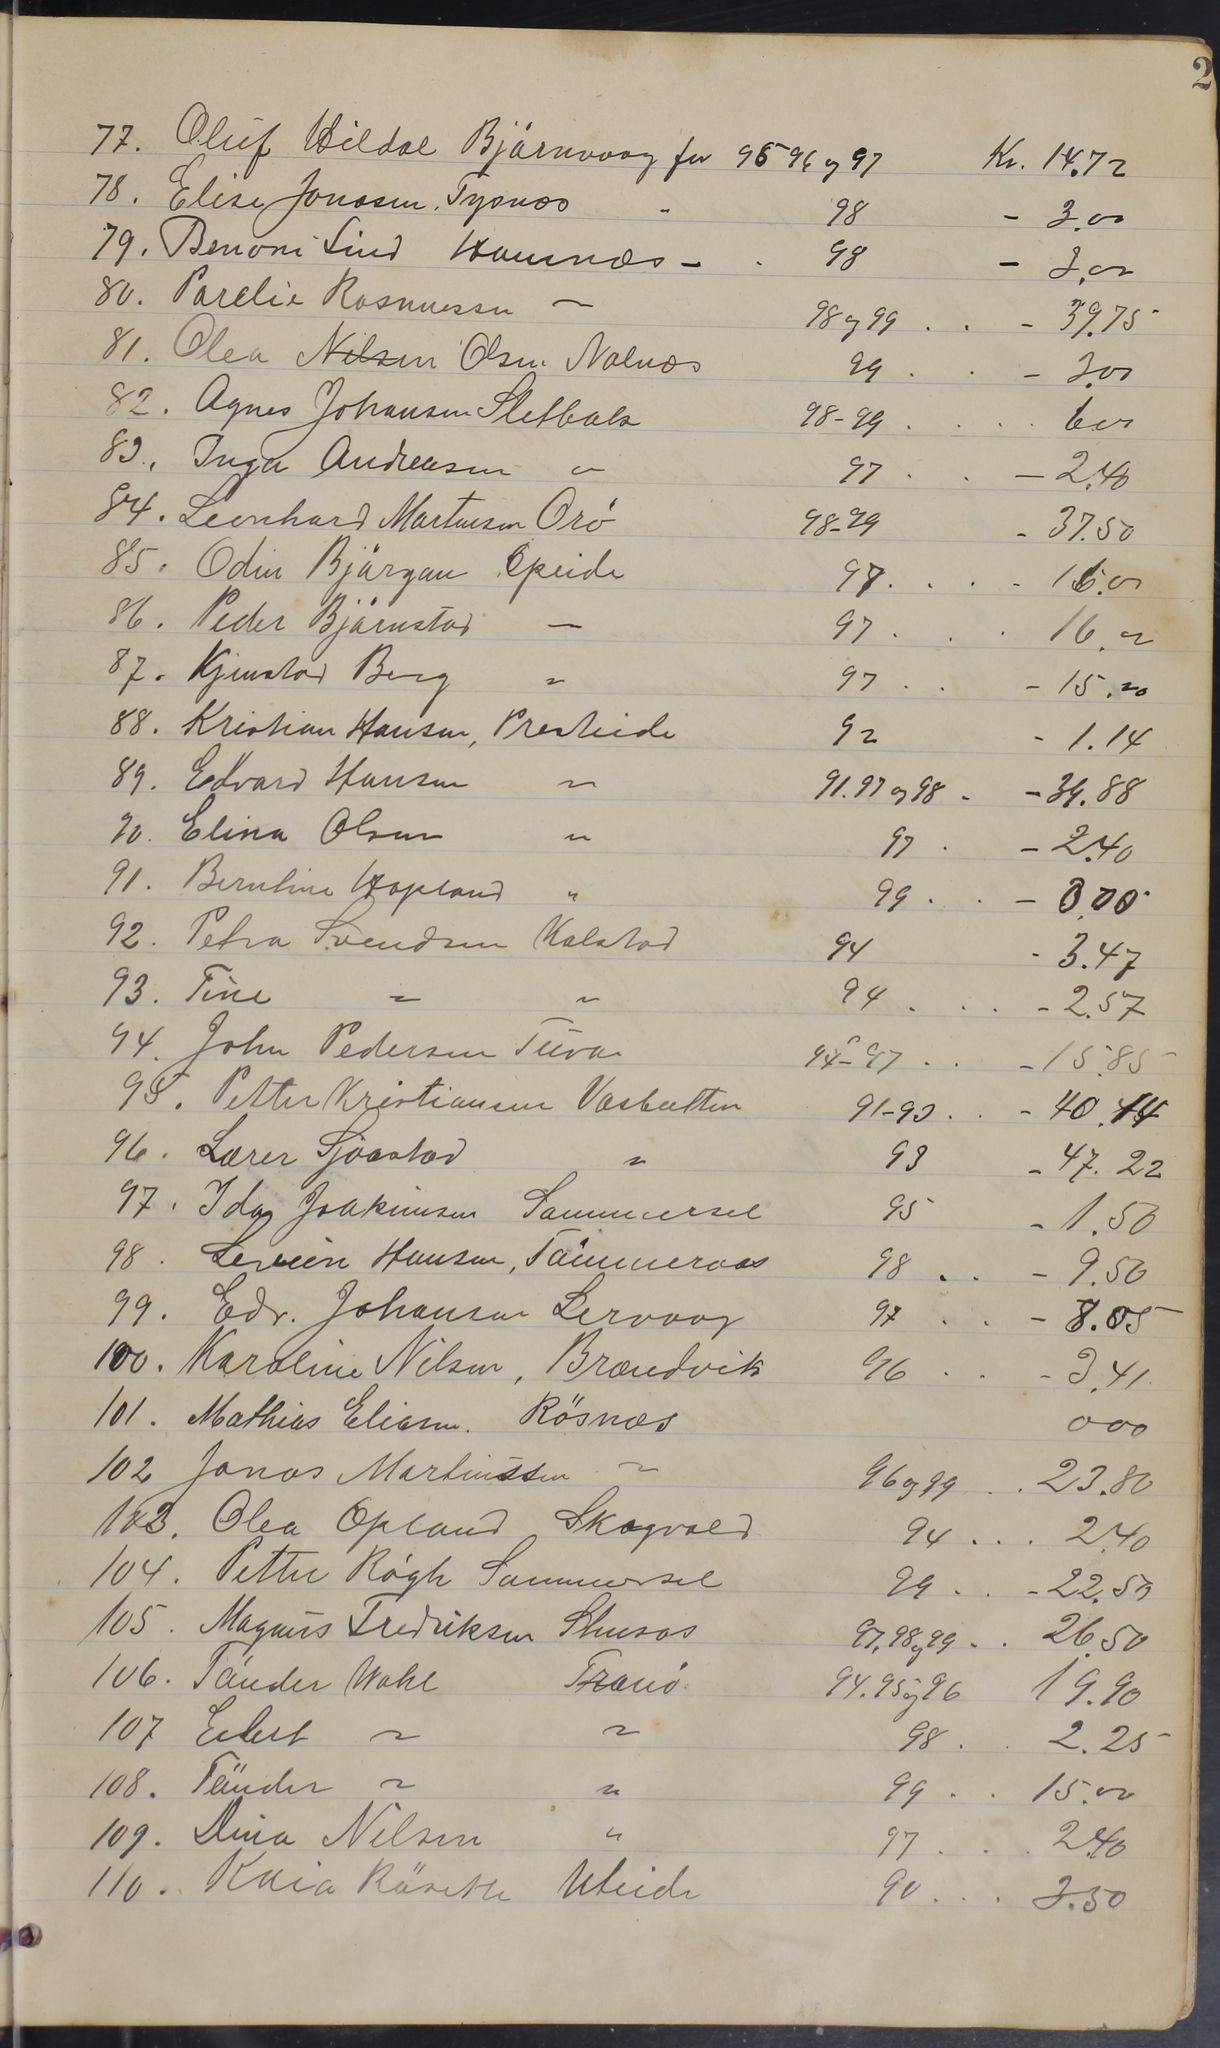 2
77. Oluf Hildal Bjärnvaag for 95 96 og 97 Kr. 14.72
78. Elise Jonassen. Tysnæs " 98 - 3.00
79. Benoni Lind Hamnæs - . 98 - 3.00
80. Parelie Rasmussen " 98 og 99 . . - 39.75
81. Olea Nilsen Olsen Nalnæs 99 . . - 3.00
82. Agnes Johansen Sletbak 98-99 . . . . 6.00
83. Inga Andreasen " 97 . . - 2.40
84. Leonhard Martinsen Orö 98-99 - 37.50
85. Odin Bjärgan Opeide 97 . . . - 16.00
86. Peder Bjärnstad - 97 . . . 16.00
87. Kjenstad Berg " 97 . . - 15.20
88. Kristian Hansen, Presteide 92 - 1.14
89. Edvard Hansen " 91. 97 og 98 . - 34.88
90. Elina Olsen " 97 . - 2.40
91. Berntine Hopland " 99 . . - 3.00
92. Petra Svendsen Kalstad 94 - 3.47
93. Tine " " 94 . . . - 2.57
94. John Pedersen Tuva 94-97 . . - 15.85
95. Petter Kristiansen Vasbotten 91-93 . . - 40.14
96. Lærer Sjöstad " 93 - 47.22
97. Ida Joakimsen Sammersel 95 - 1.50
98. Hansen, Tämmeraas 98 . . - 9.50
99. Edv. Johansen Lervaag 97 . . - 8.05
100. Karoline Nilsen, Brændvik 96 . . - 3.41
101. Mathias Eliasen. Rösnæs 000
102 Jonas Martinssen " 96 og 99 . . 23.80
103. Olea Opland Skogvold 94 . . . 2.40
104. Petter Rögh Sammersel 99 . . - 22.50
105. Magnus Fredriksen 97, 98 og 99 . . 26.50
106. Tänder Wahl Tranö 94. 95 og 96 19.90
107 Edert " " 98 . . 2.25
108. Tänder " " 99 . . 15.00
109. Dina Nilsen " 97 . . . 2.40
110. Kaia Räsetti Uteide 90 . . . 3.50